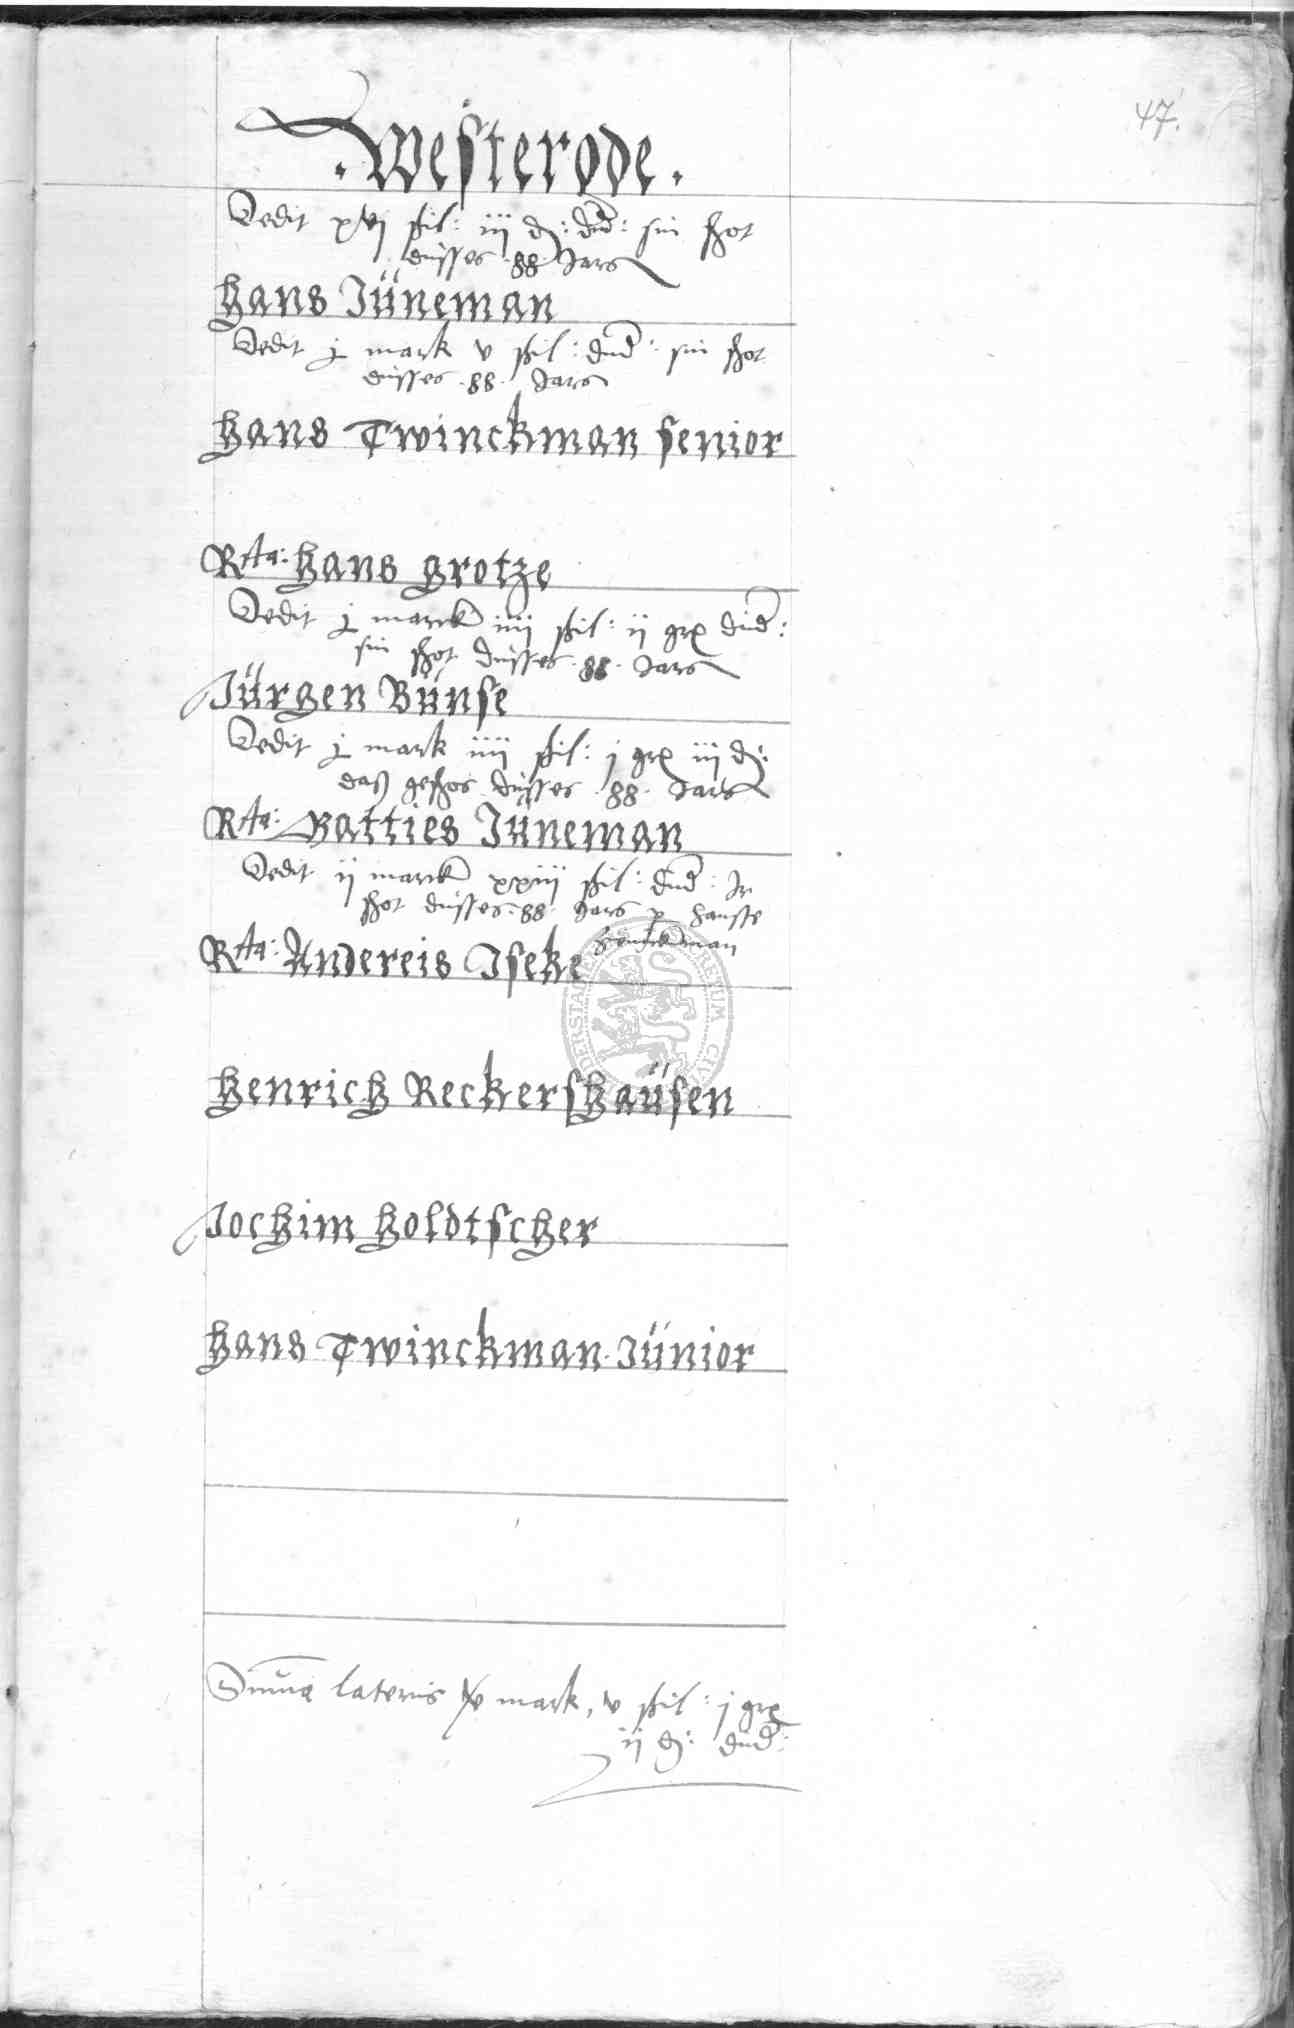 47.
. Westerode .
Dedit xvj ßil: iij d: dud: sin shot
dusses .88. Jars
Hans Jüneman
Dedit j mark v ßil: dud: sin shot
dusses .88. Jars
Hans Twinckman senior
Rta: Hans Grotze
Dedit j marck iiij ßil: ij grx dud:
sin shot dusses .88. Jars
Jürgen Bünse
Dedit j mark iiij ßil: j grx iij d:
daß geshos dusses .88. Jars
Rta: Batties Jüneman
Dedit ij marck xxiij ßil: dud: Ir
shot dusses .88. Jars p Hansse
Rta: Andereis Iseke
Henrich Reckershaüsen
Jochim Holdtscher
Hans Twinckman Jünior
Summa lateris mark, v ßil: j grx
ij d: dud: